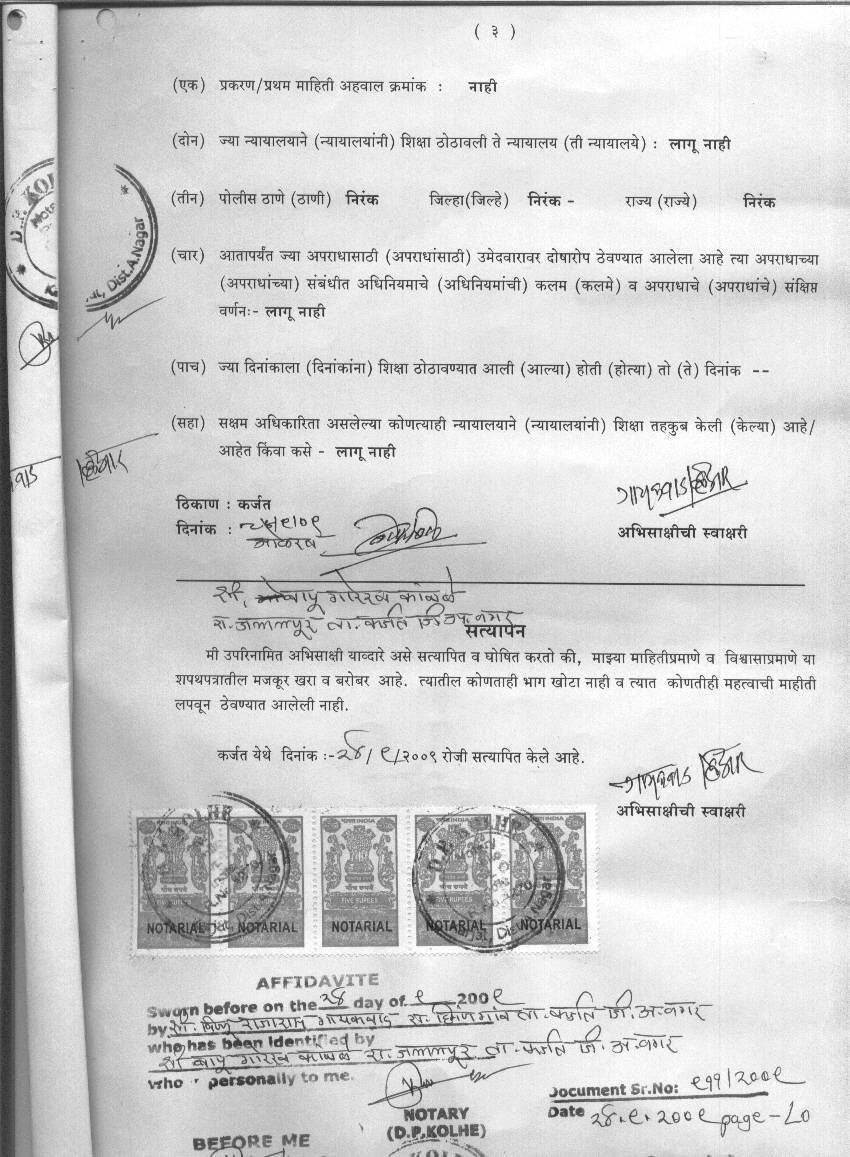 ( ३ )
(एक) प्रकरण/प्रथम माहिती अहवाल क्रमांक : नाही
(दोन) ज्या न्यायालयाने (न्यायालयांनी) शिक्षा ठोठावली ते न्यायालय (ती न्यायालये) : लागू नाही
(तीन) पोलीस ठाणे (ठाणी) निरंक जिल्हा(जिल्हे) निरंक - राज्य (राज्ये) निरंक
(चार) आतापर्यंत ज्या अपराधासाठी (अपराधांसाठी) उमेदवारावर दोषारोप ठेवण्यात आलेला आहे त्या अपराधाच्या
(अपराधांच्या) संबंधीत अधिनियमाचे (अधिनियमांची) कलम (कलमे) व अपराधाचे (अपराधांचे) संक्षिप्त
वर्णनः- लागू नाही
(पाच) ज्या दिनांकाला (दिनांकांना) शिक्षा ठोठावण्यात आली (आल्या) होती (होत्या) तो (ते) दिनांक --
(सहा) सक्षम अधिकारिता असलेल्या कोणत्याही न्यायालयाने (न्यायालयांनी) शिक्षा तहकुब केली (केल्या) आहे/
आहेत किंवा कसे - लागू नाही
ठिकाण : कर्जत
दिनांक :
अभिसाक्षीची स्वाक्षरी
बापू गोरख कांबळे
रा. जलालपूर ता. कर्जत जि. अ. नगर
सत्यापन
मी उपरिनामित अभिसाक्षी याव्दारे असे सत्यापित व घोषित करतो की, माझ्या माहितीप्रमाणे व विश्वासाप्रमाणे या
शपथपत्रातील मजकूर खरा व बरोबर आहे. त्यातील कोणताही भाग खोटा नाही व त्यात कोणतीही महत्वाची माहीती
लपवून ठेवण्यात आलेली नाही.
कर्जत येथे दिनांक :- २८/९/२००९ रोजी सत्यापित केले आहे.
गायकवाड
अभिसाक्षीची स्वाक्षरी
D.P. KOLHE
Dist.A.Nagar
NOTARIAL NOTARIAL NOTARIAL NOTARIAL NOTARIAL
AFFIDAVITE
Sworn before on the २८ day of ९ 200९
by राजाराम गायकवाड ता. कर्जत जि. अ. नगर
who has been identified by
श्री बापू गोरख कांबळे रा. जलालपूर ता. कर्जत जि. अ. नगर
who personally to me.
Document Sr.No: ९११/२००९
NOTARY
Date २८.९.२००९ page - ८०
(D.P.KOLHE)
BEFORE ME